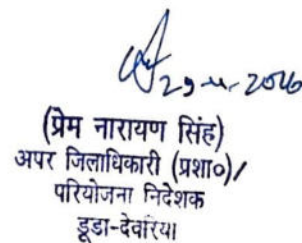 29-11-2016
(प्रेम नारायण सिंह)
अपर जिलाधिकारी (प्रशा०)/
परियोजना निदेशक
डूडा-देवरिया